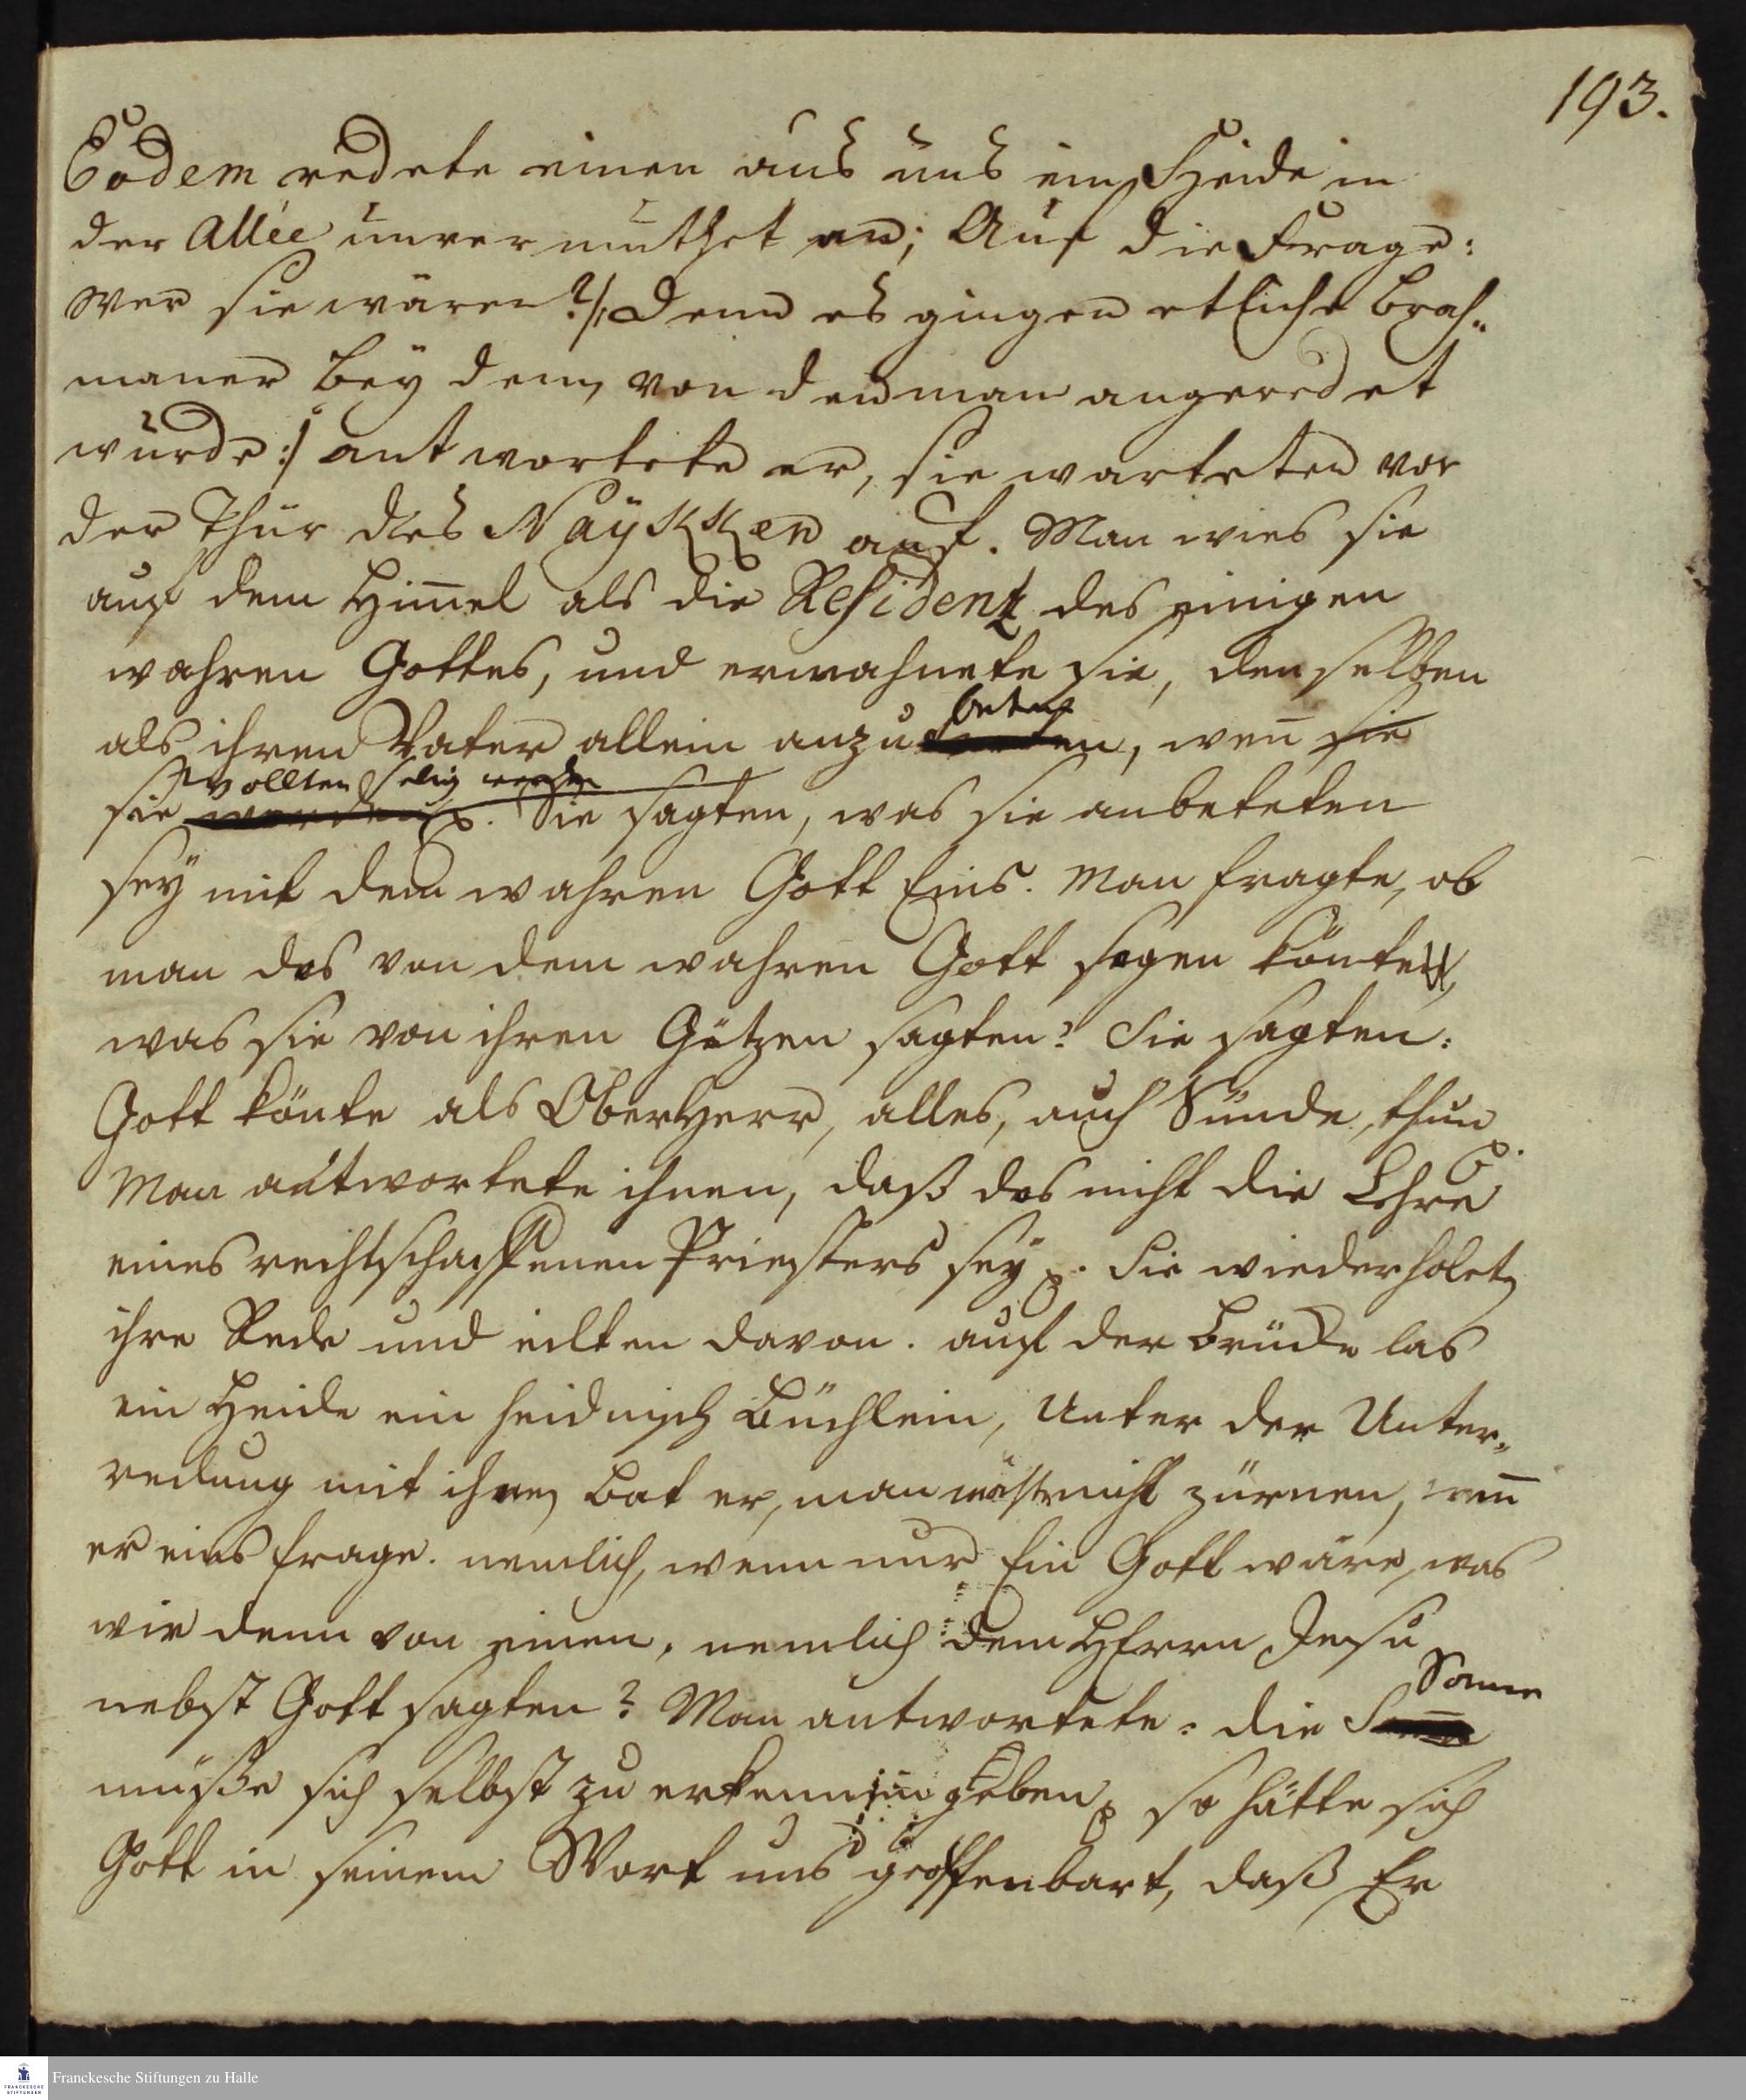 193.
Eodem redete einen aus uns ein Heide in
der Allée unvermuthet an; Auf die Frage:
Wer sie wären? /: denn es gingen etliche Brah¬
maner bey dem, von den man angeredet
wurde :/ antwortete er, sie warteten vor
der Thür des Naÿkken auf. Man wies sie
auf dem Himmel als die Residentz des einigen
wahren Gottes, und ermahnete sie, denselben
als ihren Vater allein anzubeten, wen̄ sie
sie wollten selig werden p. Sie sagten, was sie anbeteten
seÿ mit dem wahren Gott Eins. Man fragte, ob
man das von dem wahren Gott sagen könte,
was sie von ihren Götzen sagten? Sie sagten:
Gott könte als OberHerr, alles, auch Sünde, thun p.
Man antwortete ihnen, daß das nicht die Lehre
eines rechtschaffenen Priesters seÿ p. Sie wiederholeten
ihre Rede und eilten davon. auf der Brücke las
ein Heide ein heidnisch Büchlein, Unter der Unter¬
redung mit ihnen bat er, man möchte nicht zürnen, wen̄
er eins frage. nemlich, wenn nur Ein Gott wäre, was
wir denn von einen, nemlich dem HErrn Jesu
nebst Gott sagten? Man antwortete: die Sonne
müsse sich selbst zu erkennen geben p so hätte sich
Gott in seinem Wort uns geoffenbart, daß Er
Franckesche Stiftungen zu Halle
FRANCKESCHE
STIFTUNGEN